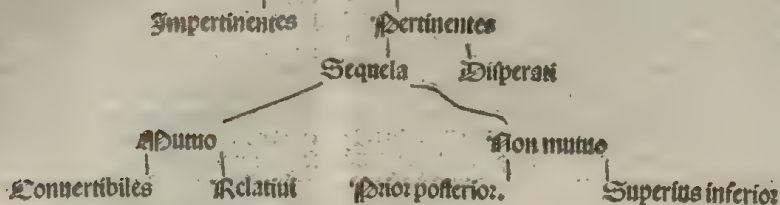 Impertinentes Pertinentes
Sequela Disperati
Mutuo Non mutuo
Conuertibiles Relatiui Prior posterior. Superius inferior